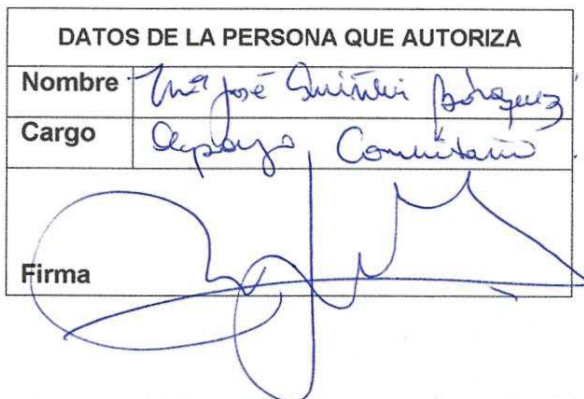 DATOS DE LA PERSONA QUE AUTORIZA
Nombre Mª José Bórquez
Cargo Apoyo Comunitario
Firma